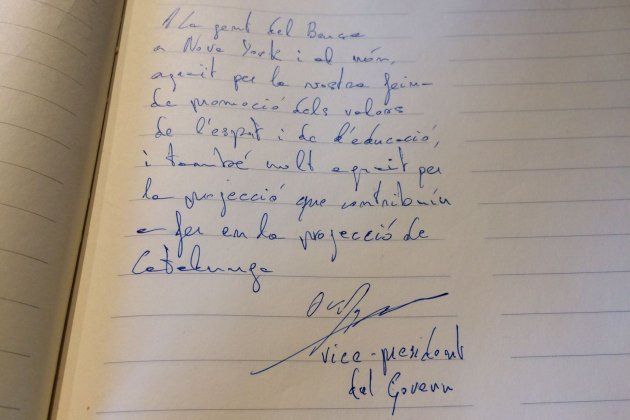 A la gent del Barça
a Nova York i al món,
agraït per la vostra feina
de promoció dels valors
de l'esport i de l'educació,
i també molt agraït per
la projecció que contribuïu
a fer en la projecció de
Catalunya
vice-president
del Govern